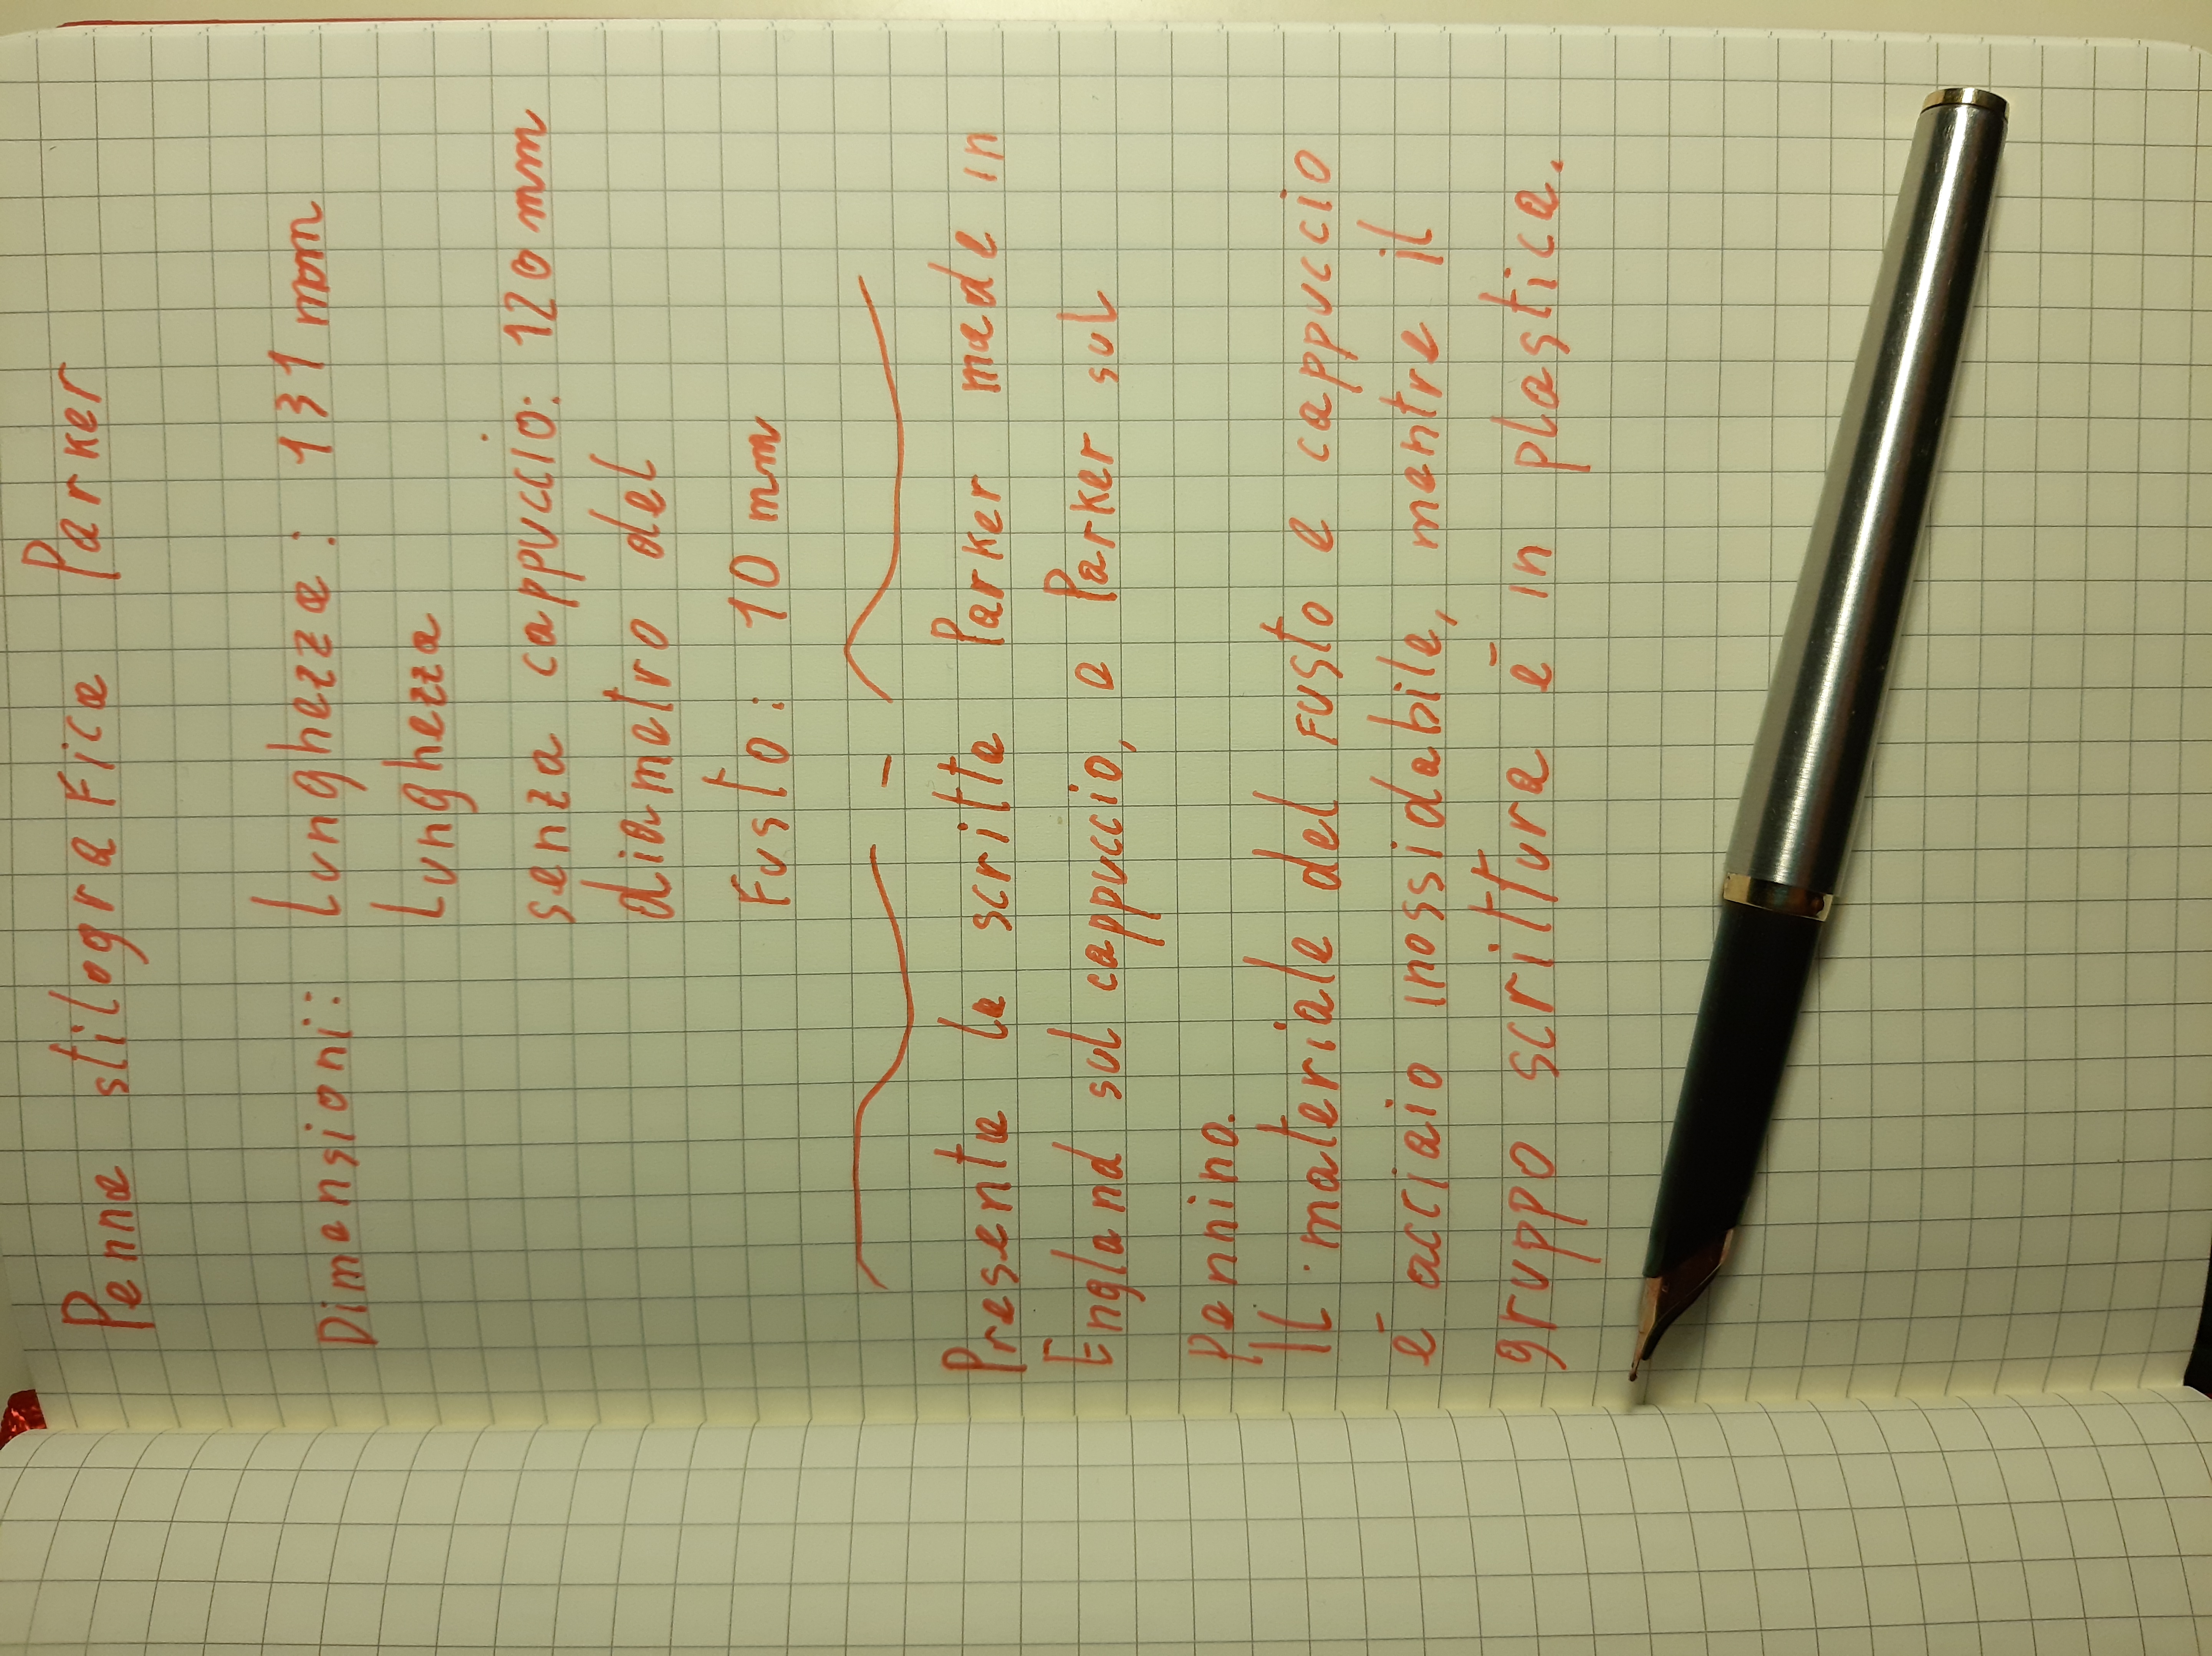 Penna stilografica Parker
Dimensioni: Lunghezza: 131 mm
Lunghezza
senza cappuccio: 120 mm
diametro del
Fusto: 10 mm
Presente la scritta Parker made in
England sul cappuccio, e Parker sul
Pennino.
Il materiale del fusto e cappuccio
è acciaio inossidabile, mentre il
gruppo scrittura è in plastica.